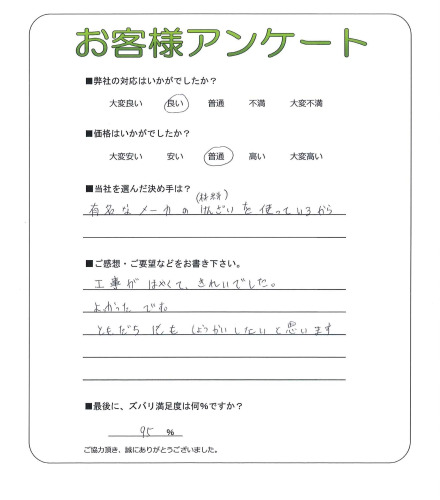 お客様アンケート
■弊社の対応はいかがでしたか?
大変良い 良い 普通 不満 大変不満
■価格はいかがでしたか?
大変安い 安い 普通 高い 大変高い
■当社を選んだ決め手は?
(材料)
有名なメーカのけんざいを使っているから
■ご感想・ご要望などをお書き下さい。
工事がはやくて、きれいでした。
よかったです。
ともだちにもしょうかいしたいと思います
■最後に、ズバリ満足度は何%ですか?
95 %
ご協力頂き、誠にありがとうございました。